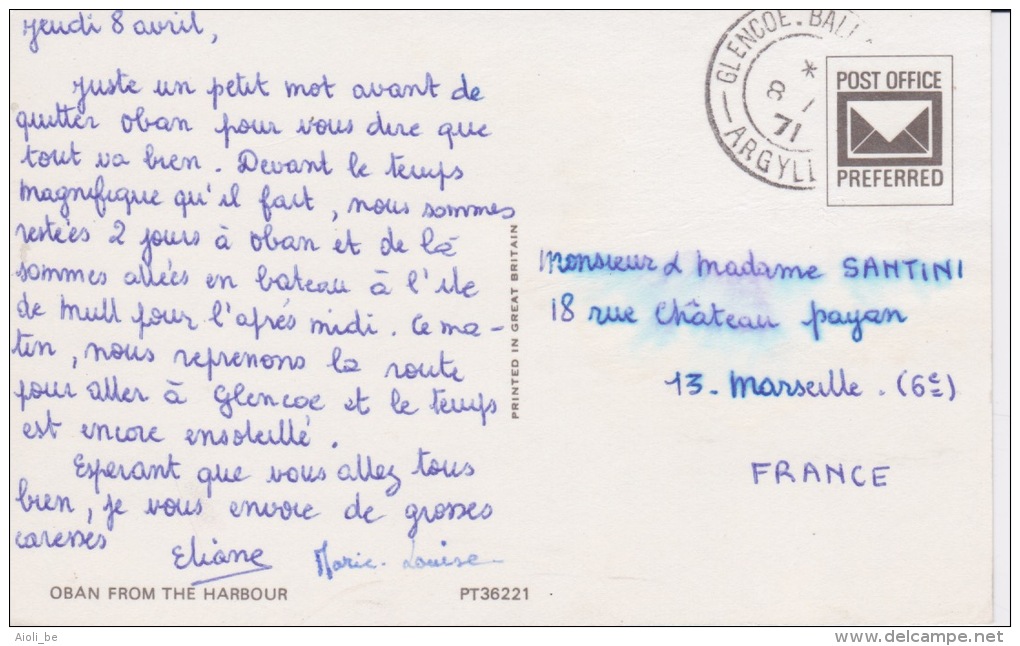 Jeudi 8 avril,
Juste un petit mot avant de
quitter Oban pour vous dire que
tout va bien. Devant le temps
magnifique qu'il fait, nous sommes
restées 2 jours à Oban et de là
sommes allées en bateau à l'ile
de Mull pour l'après midi. Ce ma-
tin, nous reprenons la route
pour aller à Glencoe et le temps
est encore ensoleillé.
Esperant que vous allez tous
bien, je vous envoie de grosses
caresses
Eliane Marie-Louise
OBAN FROM THE HARBOUR
PT36221
PRINTED IN GREAT BRITAIN
GLENCOE. BALL
* 8 71
ARGYLL
POST OFFICE
PREFERRED
Monsieur & Madame SANTINI
18 rue Château payan
13. Marseille. (6e)
FRANCE
Aioli_be
www.delcampe.net